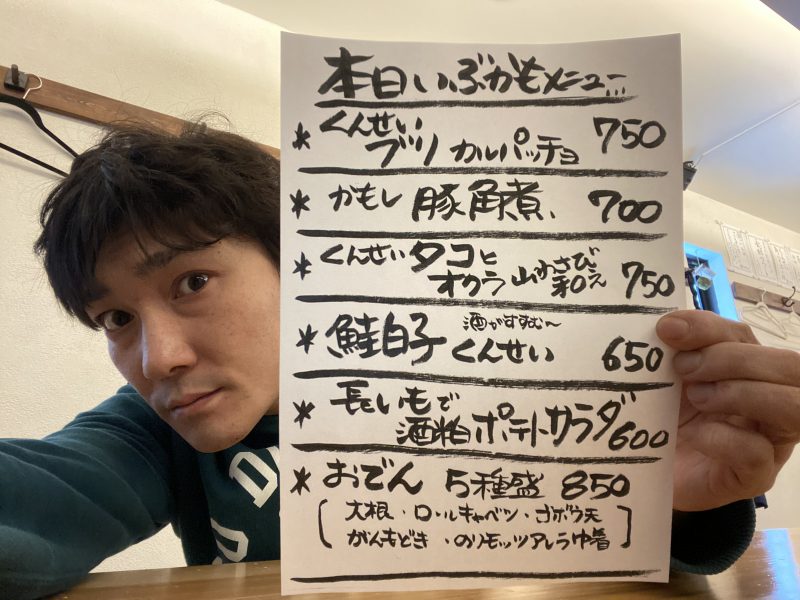 本日いぶかもメニュー...
* くんせい
ブツ カルパッチョ 750
* かもし 豚角煮、 700
* くんせいタコと
オクラ 山わさび和え 750
* 鮭白子 酒がすすむ〜
くんせい 650
* 長いもで
酒粕ポテトサラダ 600
* おでん 5種盛 850
[大根・ロールキャベツ・ゴボウ天
がんもどき・のりモッツアレラ巾着]